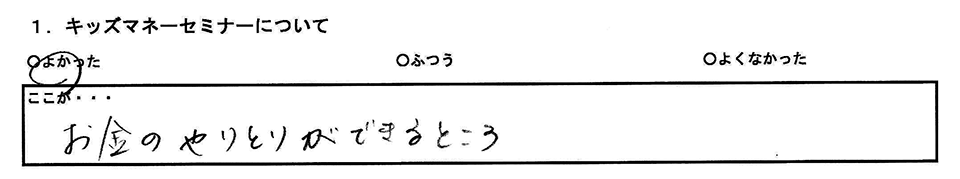 1. キッズマネーセミナーについて
○よかった ○ふつう ○よくなかった
ここが・・・
お金のやりとりができるところ